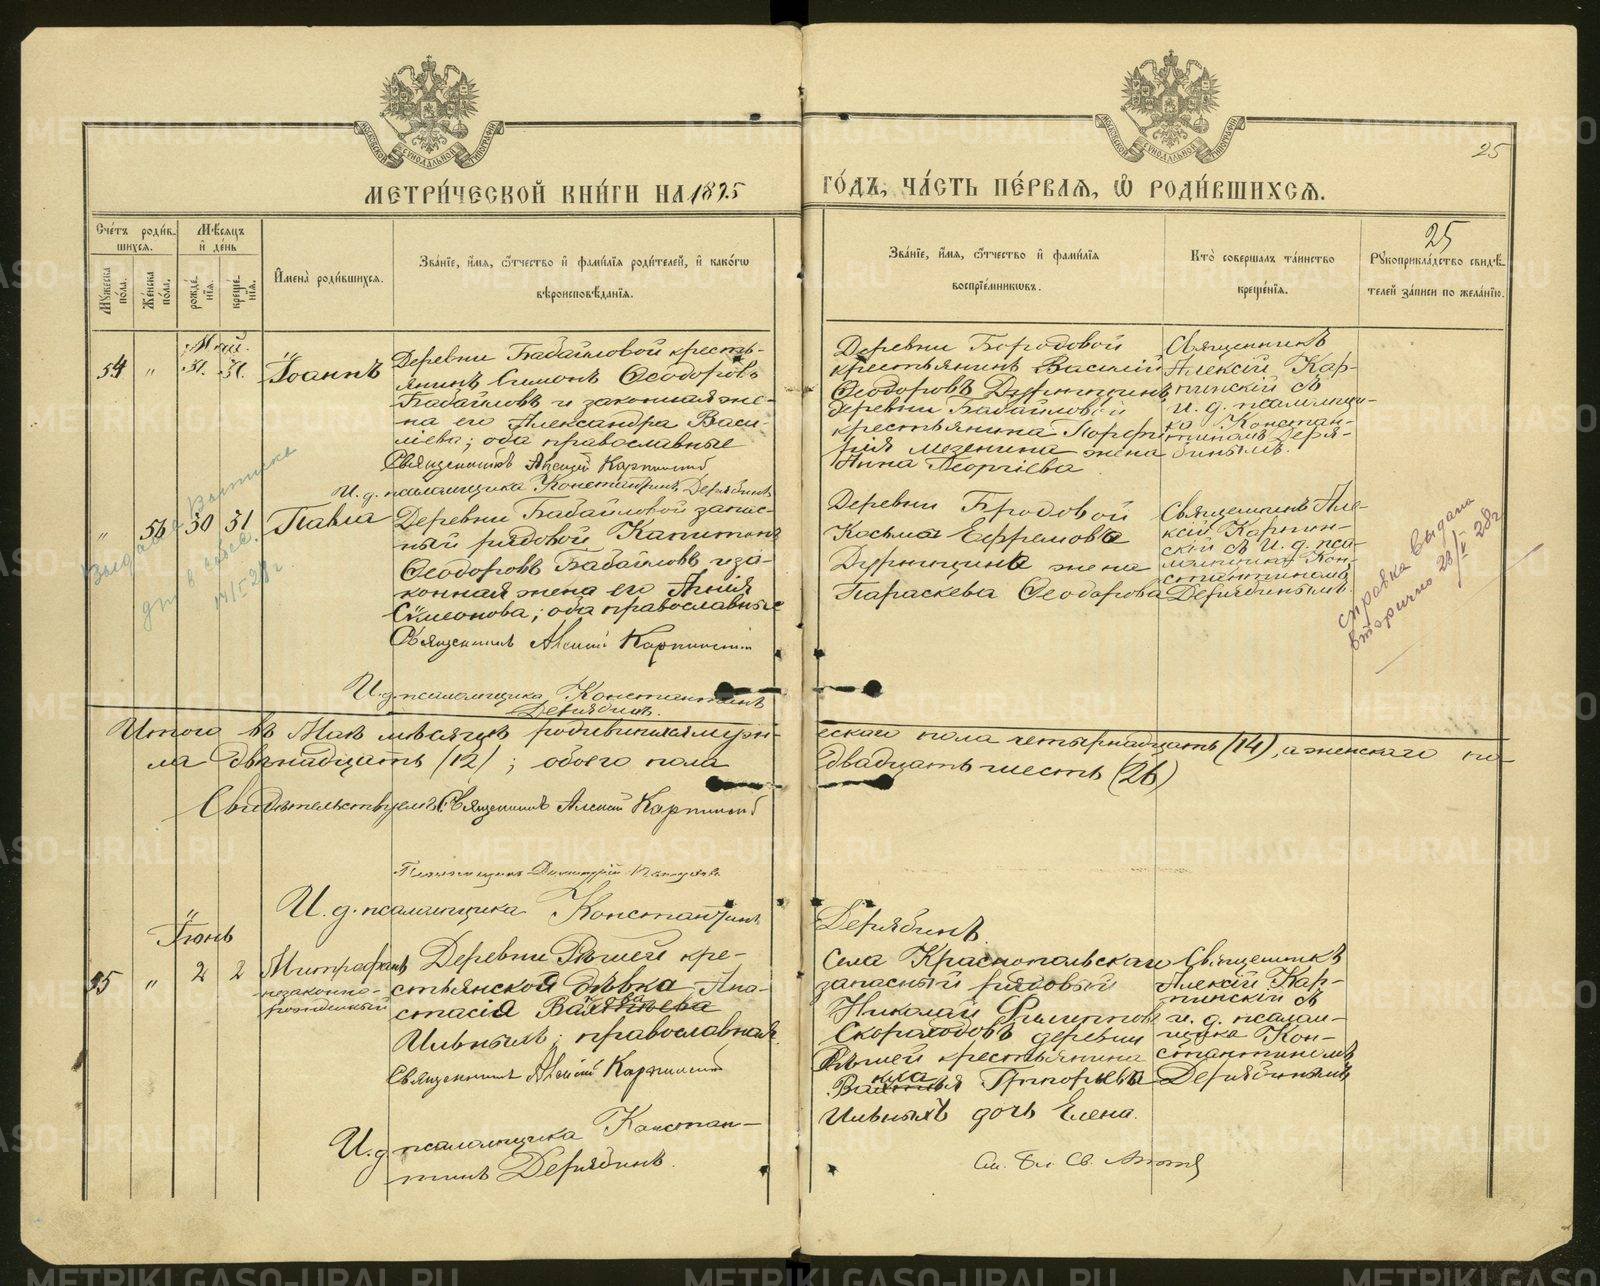 МОСКОВСКОЙ СѴНОДАЛЬНОЙ ТИПОГРАФІИ
МОСКОВСКОЙ СѴНОДАЛЬНОЙ ТИПОГРАФІИ
25
МЕТРИ́ЧЕСКОЙ КНИ́ГИ НА 1895
ГО́ДЪ, ЧА́СТЬ ПЕ́РВАЯ, Ѽ РОДИ́ВШИХСЯ.
25
Сче́тъ роди́в-
шихся.
Му́жеска по́ла.
Же́нска по́ла.
Мѣ́сяцъ и де́нь
рожде́нія.
креще́нія.
Имена̀ роди́вшихся.
Зва́ніе, и́мя, ѻ́тчество и фами́лія роди́телей, и како́гѡ
вѣроисповѣ́данія.
Зва́ніе, и́мя, ѻ́тчество и фами́лія
воспріе́мникѡвъ.
Кто̀ соверша́лъ та́инство
креще́нія.
Рукоприкла́дство свидѣ́-
телей за́писи по жела́нію.
Май.
54 " 31. 31. Іоаннъ
Деревни Бабайловой кресть-
янинъ Симонъ Ѳеодоровъ
Бабайловъ и законная же-
на его Александра Васи-
ліева; оба православные
Священникъ Алексій Карпинскій
И. д. псаломщика Константинъ Дерябинъ
Деревни Бородовой
крестьянинъ Василій
Ѳеодоровъ
деревни Бабайловой
крестьянина Порфи-
рія Мезенина жена
Анна Георгіева
Священникъ
Алексій Кар-
пинскій съ
и. д. псаломщи-
ка Констан-
тиномъ Деря-
бинымъ.
" 56 30 31 Павла
Деревни Бабайловой запас-
ный рядовой Капитонъ
Ѳеодоровъ Бабайловъ и за-
конная жена его Агнія
Симеонова; оба православные
Священникъ Алексій Карпинскій
И. д. псаломщика Константинъ
Дерябинъ.
Деревни Бродовой
Косьма Ефремова
жена
Параскева Ѳеодорова
Священникъ Але-
ксій Карпин-
скій съ и. д. пса-
ломщика Кон-
стантиномъ
Дерябинымъ.
Выдана выписка
в сельс.
17/I 28 г.
справка выдана
вторично 28/V 28 г
Итого въ Маѣ мѣсяцѣ родившихся муж-
ескаго пола четырнадцать (14), а женскаго по-
ла двѣнадцать (12); обоего пола
двадцать шесть (26)
Свидѣтельствуемъ: Священникъ Алексій Карпинскій
И. д. псаломщика Константинъ
Дерябинъ.
Іюнь
55 " 2 2 Митрофанъ
незаконно-
рожденный
Деревни Рѣшей кре-
стьянской дѣвка Ана-
стасія
Ильныхъ; православная.
Священникъ Алексій Карпинскій
И. д. псаломщика Констан-
тинъ Дерябинъ.
Села Краснопольскаго
запасный рядовой
Николай Филиппов
Скороходовъ деревни
Рѣшей крестьянина
Григорьева
Ильныхъ дочь Елена.
Священникъ
Алексій Кар-
пинскій съ
и. д. псалом-
щика Кон-
стантиномъ
Дерябинымъ
METRIKI.GASO-URAL.RU